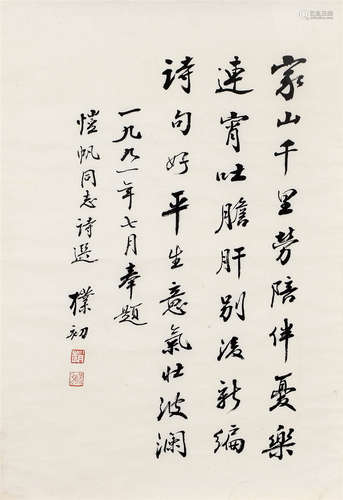 家山千里劳陪伴憂樂
連宵吐膽肝别後新编
詩句好平生意氣壮波澜
一九九一年七月奉題
愷帆同志詩選 樸初